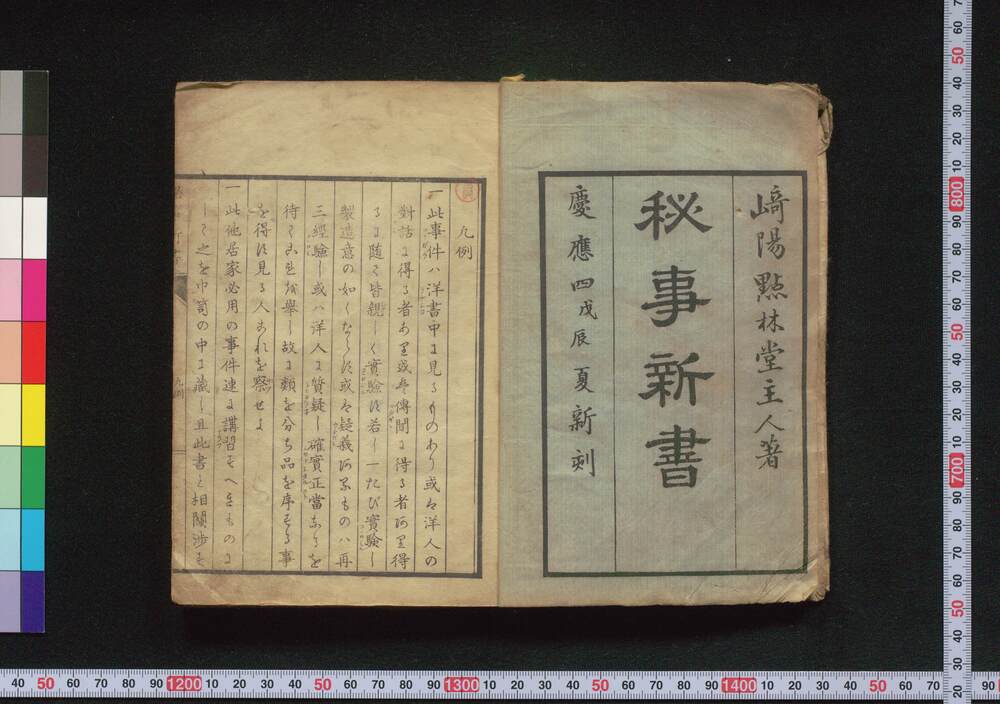 﨑陽㸃林堂主人著
秘事新書
慶應四戊辰夏新刻
凡例
一此事件ハ洋書中に見るものあり或は洋人の
對話に得る者あり或は傳聞に得る者あり得
るに随て皆親しく實驗し若し一たび實驗し
製造意の如くならず或は疑義あるものハ再
三經驗し或ハ洋人に質疑し確實正當なるを
待てこれを擧し故に類を分ち品を序する事
を得ず見る人あれを察せよ
一此他居家必用の事件速に講習すべきものに
して之を巾笥の中に藏し且此書と相關渉す